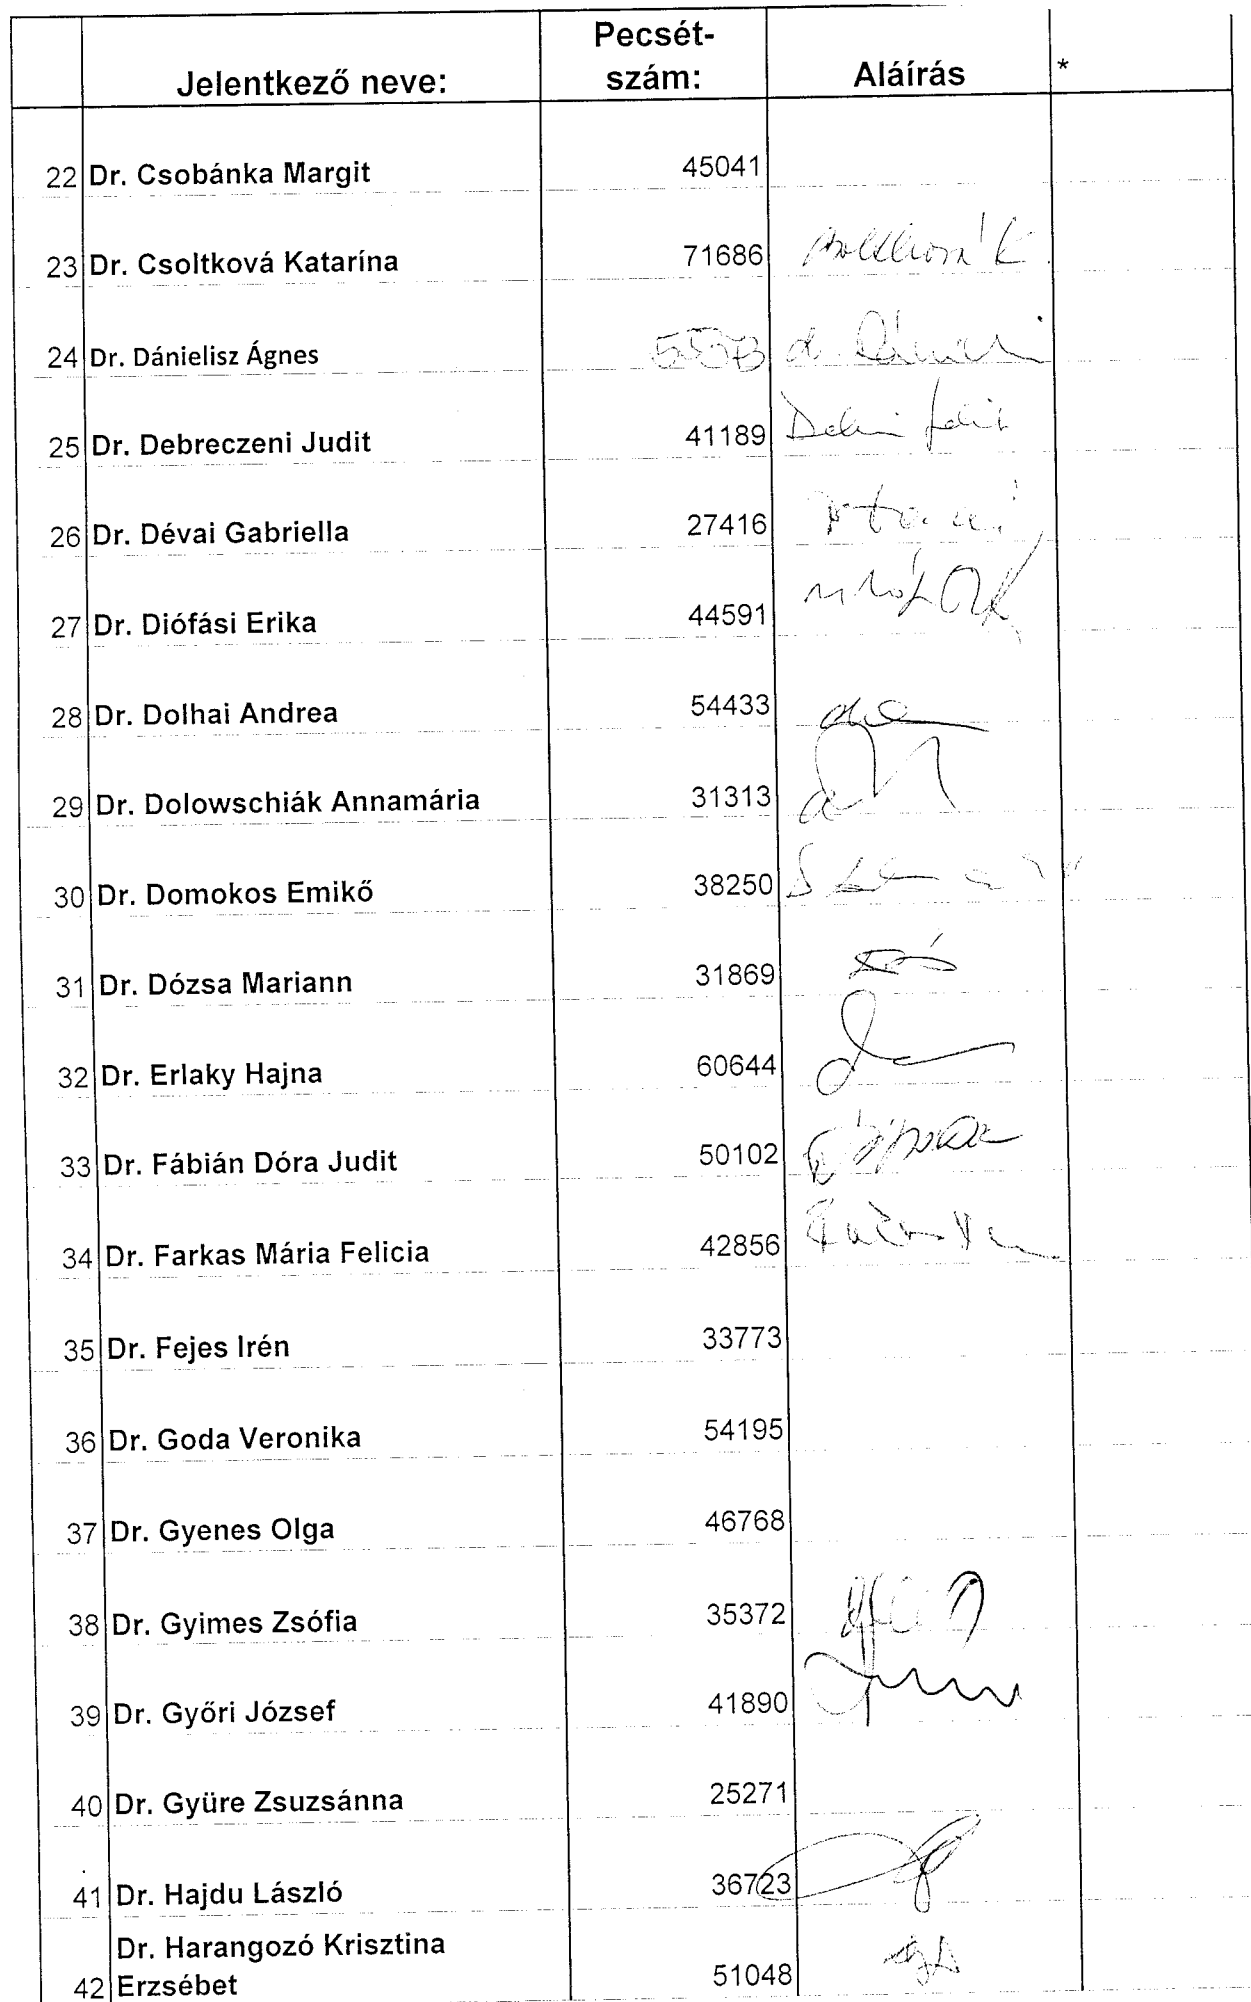 Jelentkező neve: Pecsét-szám: Aláírás *
22 Dr. Csobánka Margit 45041
23 Dr. Csoltková Katarína 71686
24 Dr. Dánielisz Ágnes
25 Dr. Debreczeni Judit 41189
26 Dr. Dévai Gabriella 27416
27 Dr. Diófási Erika 44591
28 Dr. Dolhai Andrea 54433
29 Dr. Dolowschiák Annamária 31313
30 Dr. Domokos Emikő 38250
31 Dr. Dózsa Mariann 31869
32 Dr. Erlaky Hajna 60644
33 Dr. Fábián Dóra Judit 50102
34 Dr. Farkas Mária Felicia 42856
35 Dr. Fejes Irén 33773
36 Dr. Goda Veronika 54195
37 Dr. Gyenes Olga 46768
38 Dr. Gyimes Zsófia 35372
39 Dr. Győri József 41890
40 Dr. Gyüre Zsuzsánna 25271
41 Dr. Hajdu László 36723
Dr. Harangozó Krisztina
42 Erzsébet 51048